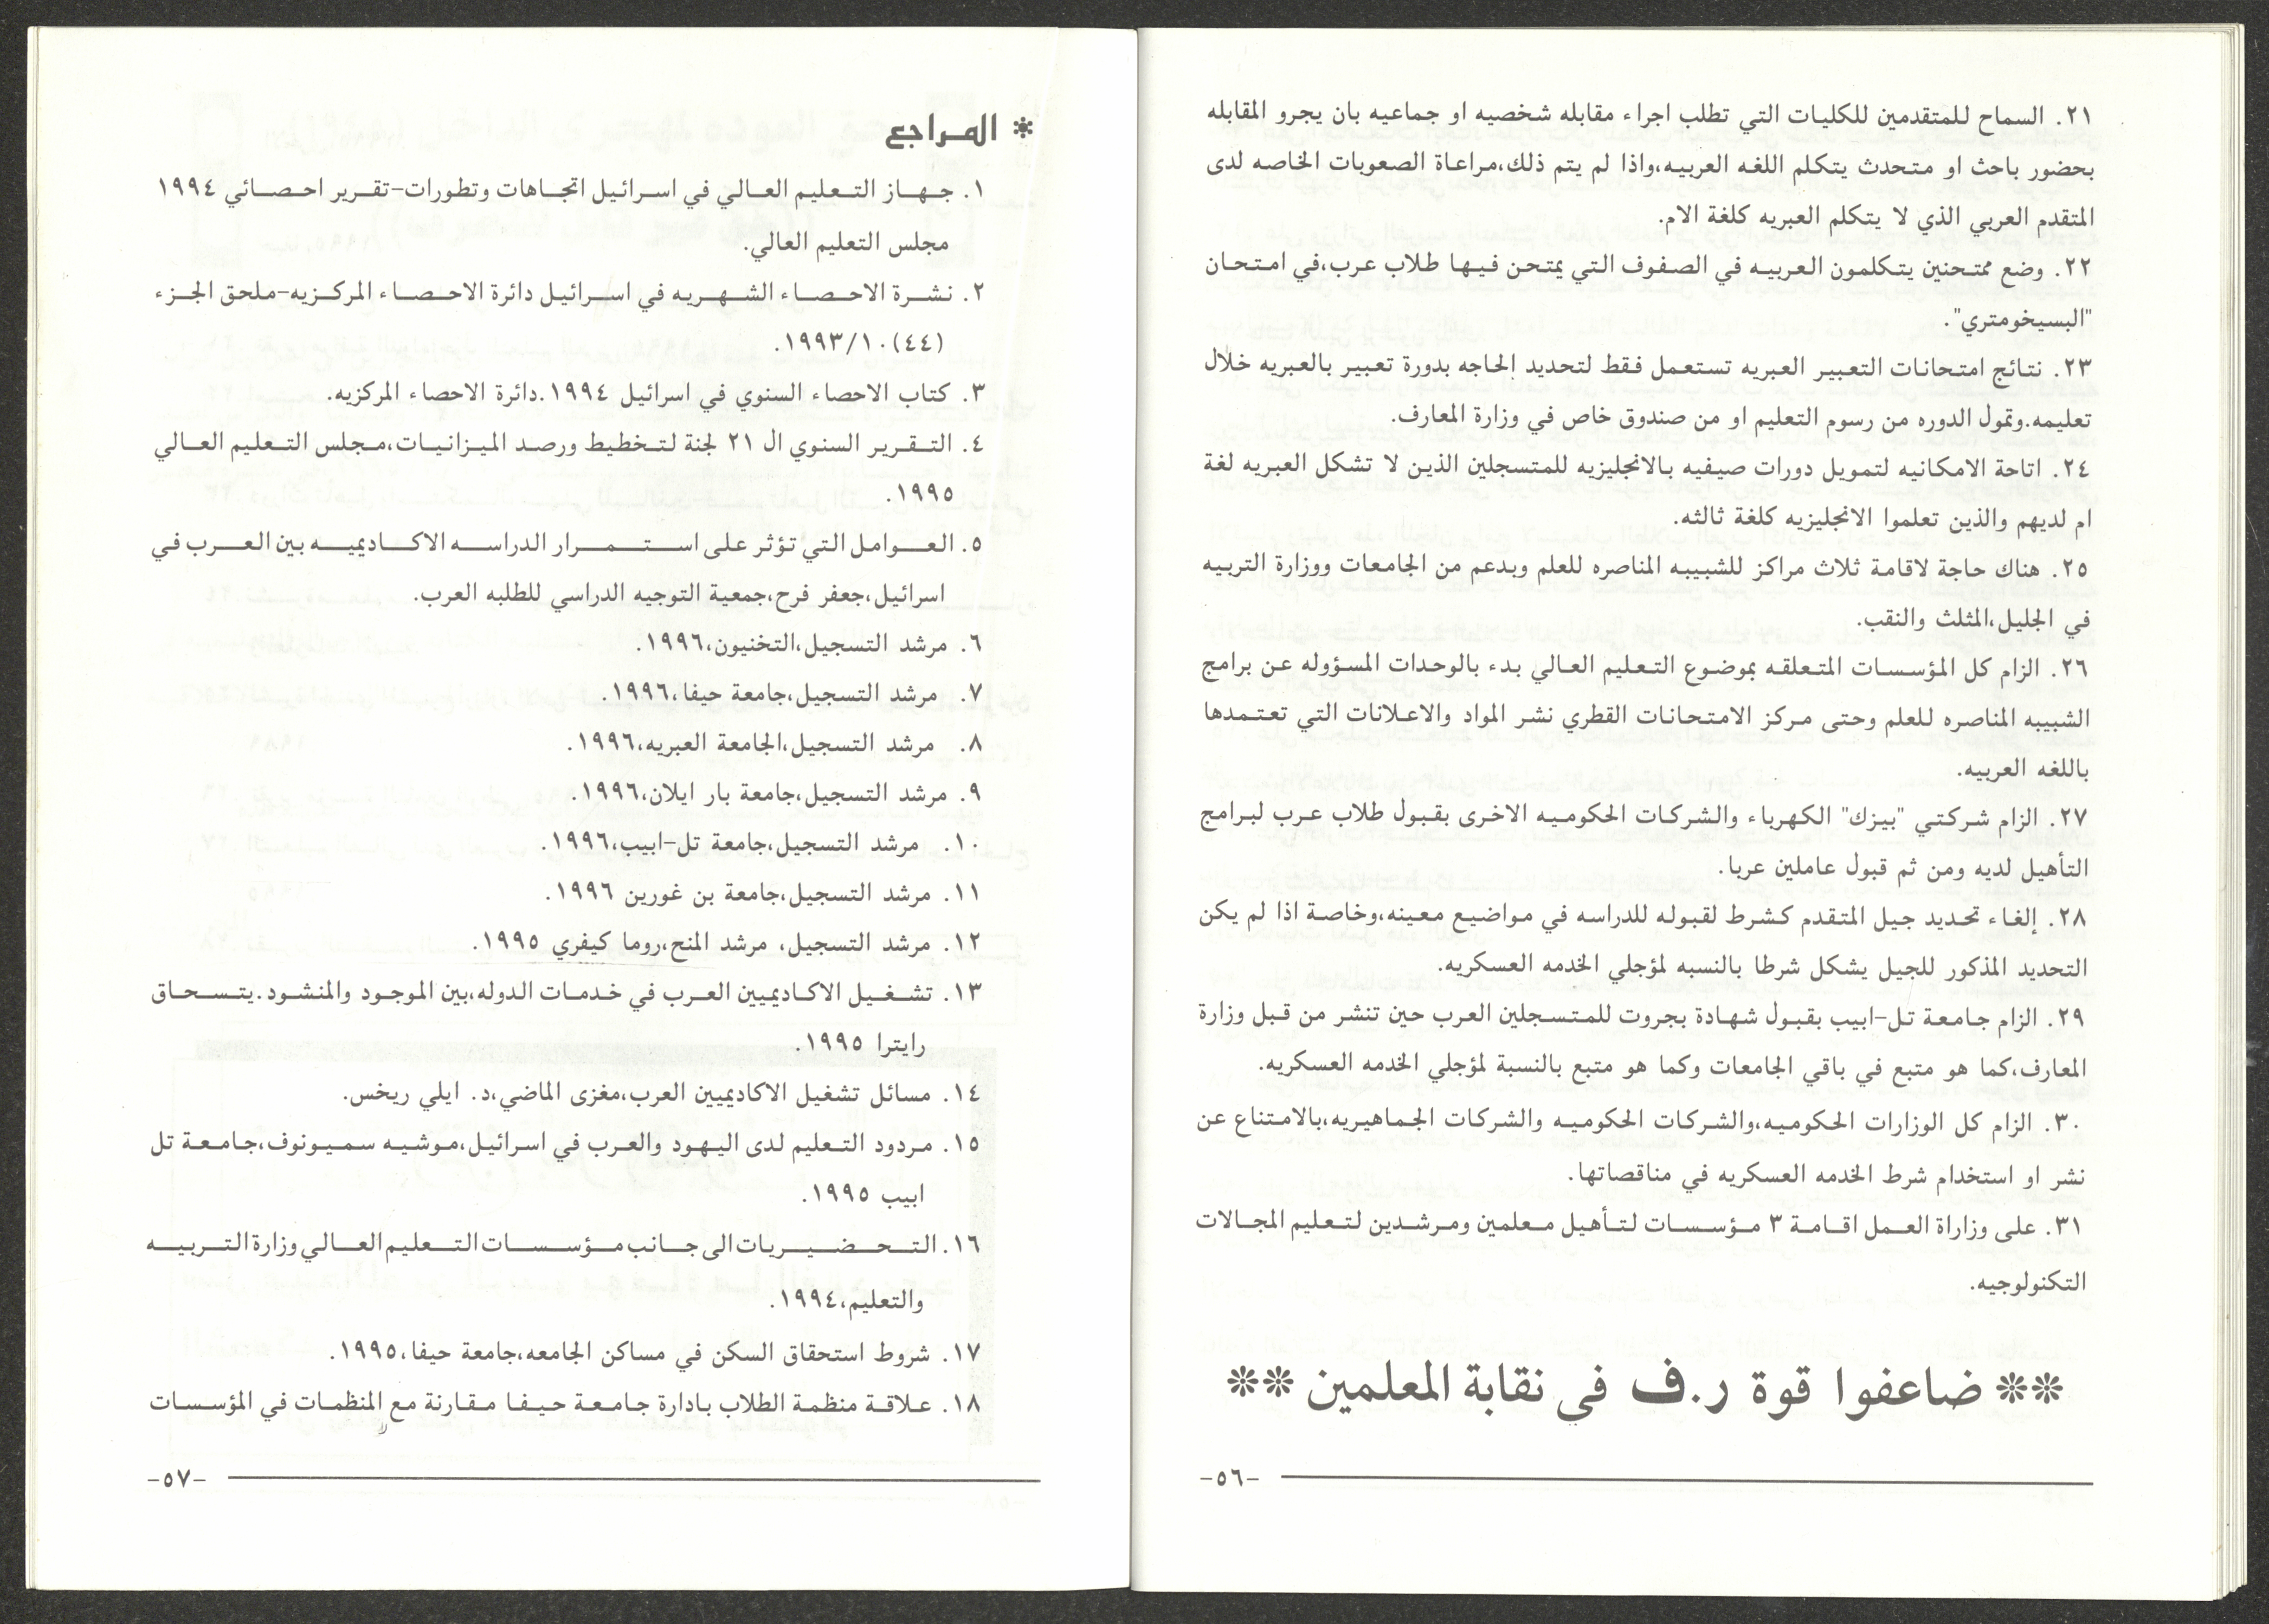 ٢١. السماح للمتقدمين للكليات التي تطلب اجراء مقابله شخصيه او جماعيه بان يجرو المقابله
بحضور باحث او متحدث يتكلم اللغه العربيه،واذا لم يتم ذلك،مراعاة الصعوبات الخاصه لدى
المتقدم العربي الذي لا يتكلم العبريه كلغة الام.
٢٢. وضع ممتحنين يتكلمون العربيه في الصفوف التي يمتحن فيها طلاب عرب،في امتحان
"البسيخومتري".
٢٣. نتائج امتحانات التعبير العبريه تستعمل فقط لتحديد الحاجه بدورة تعبير بالعبريه خلال
تعليمه.وتمول الدوره من رسوم التعليم او من صندوق خاص في وزارة المعارف.
٢٤. اتاحة الامكانيه لتمويل دورات صيفيه بالانجليزيه للمتسجلين الذين لا تشكل العبريه لغة
ام لديهم والذين تعلموا الانجليزيه كلغة ثالثه.
٢٥. هناك حاجة لاقامة ثلاث مراكز للشبيبه المناصره للعلم وبدعم من الجامعات ووزارة التربيه
في الجليل،المثلث والنقب.
٢٦. الزام كل المؤسسات المتعلقه بموضوع التعليم العالي بدء بالوحدات المسؤوله عن برامج
الشبيبه المناصره للعلم وحتى مركز الامتحانات القطري نشر المواد والاعلانات التي تعتمدها
باللغه العربيه.
٢٧. الزام شركتي "بيزك" الكهرباء والشركات الحكوميه الاخرى بقبول طلاب عرب لبرامج
التأهيل لديه ومن ثم قبول عاملين عربا.
٢٨. إلغاء تحديد جيل المتقدم كشرط لقبوله للدراسه في مواضيع معينه،وخاصة اذا لم يكن
التحديد المذكور للجيل يشكل شرطا بالنسبه لمؤجلي الخدمه العسكريه.
٢٩. الزام جامعة تل-ابيب بقبول شهادة بجروت للمتسجلين العرب حين تنشر من قبل وزارة
المعارف،كما هو متبع في باقي الجامعات وكما هو متبع بالنسبة لمؤجلي الخدمه العسكريه.
٣٠. الزام كل الوزارات الحكوميه،والشركات الحكوميه والشركات الجماهيريه،بالامتناع عن
نشر او استخدام شرط الخدمه العسكريه في مناقصاتها.
٣١. على وزاراة العمل اقامة ٣ مؤسسات لتأهيل معلمين ومرشدين لتعليم المجالات
التكنولوجيه.
** ضاعفوا قوة ر.ف في نقابة المعلمين **
-٥٦-
* المراجع
١. جهاز التعليم العالي في اسرائيل اتجاهات وتطورات-تقرير احصائي ١٩٩٤
مجلس التعليم العالي.
٢. نشرة الاحصاء الشهريه في اسرائيل دائرة الاحصاء المركزيه-ملحق الجزء
(٤٤)١٩٩٣/١٠.
٣. كتاب الاحصاء السنوي في اسرائيل ١٩٩٤.دائرة الاحصاء المركزيه.
٤. التقرير السنوي ال ٢١ لجنة لتخطيط ورصد الميزانيات،مجلس التعليم العالي
١٩٩٥.
٥. العوامل التي تؤثر على استمرار الدراسه الاكاديميه بين العرب في
اسرائيل،جعفر فرح،جمعية التوجيه الدراسي للطلبه العرب.
٦. مرشد التسجيل،التخنيون،١٩٩٦.
٧. مرشد التسجيل،جامعة حيفا،١٩٩٦.
٨. مرشد التسجيل،الجامعة العبريه،١٩٩٦.
٩. مرشد التسجيل،جامعة بار ايلان،١٩٩٦.
١٠. مرشد التسجيل،جامعة تل-ابيب،١٩٩٦.
١١. مرشد التسجيل،جامعة بن غورين ١٩٩٦.
١٢. مرشد التسجيل، مرشد المنح،روما كيفري ١٩٩٥.
١٣. تشغيل الاكاديميين العرب في خدمات الدوله،بين الموجود والمنشود.يتسحاق
رايترا ١٩٩٥.
١٤. مسائل تشغيل الاكاديميين العرب،مغزى الماضي،د. ايلي ريخس.
١٥. مردود التعليم لدى اليهود والعرب في اسرائيل،موشيه سميونوف،جامعة تل
ابيب ١٩٩٥.
١٦. التحضيريات الى جانب مؤسسات التعليم العالي وزارة التربيه
والتعليم،١٩٩٤.
١٧. شروط استحقاق السكن في مساكن الجامعه،جامعة حيفا،١٩٩٥.
١٨. علاقة منظمة الطلاب بادارة جامعة حيفا مقارنة مع المنظمات في المؤسسات
-٥٧-